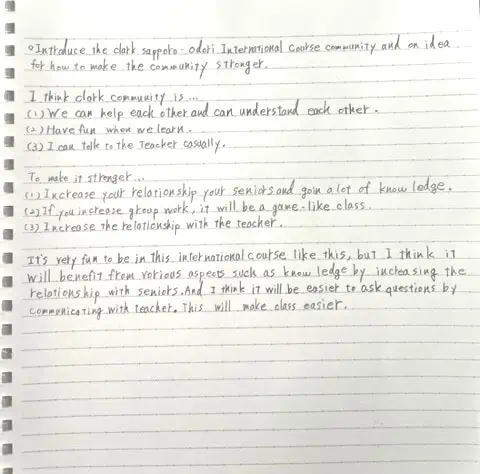 ○Introduce the clark sapporo-odori International Course community and an idea
for how to make the community stronger.
I think clark community is...
(1) We can help each other and can understand each other.
(2) Have fun when we learn.
(3) I can talk to the Teacher casually.
To make it stronger...
(1) Increase your relationship your seniors and gain a lot of know ledge.
(2) If you increase group work, it will be a game-like class.
(3) Increase the relationship with the teacher.
It's very fun to be in this international course like this, but I think it
will benefit from various aspects such as know ledge by increasing the
relationship with seniors. And I think it will be easier to ask questions by
communicating with teacher. This will make class easier.